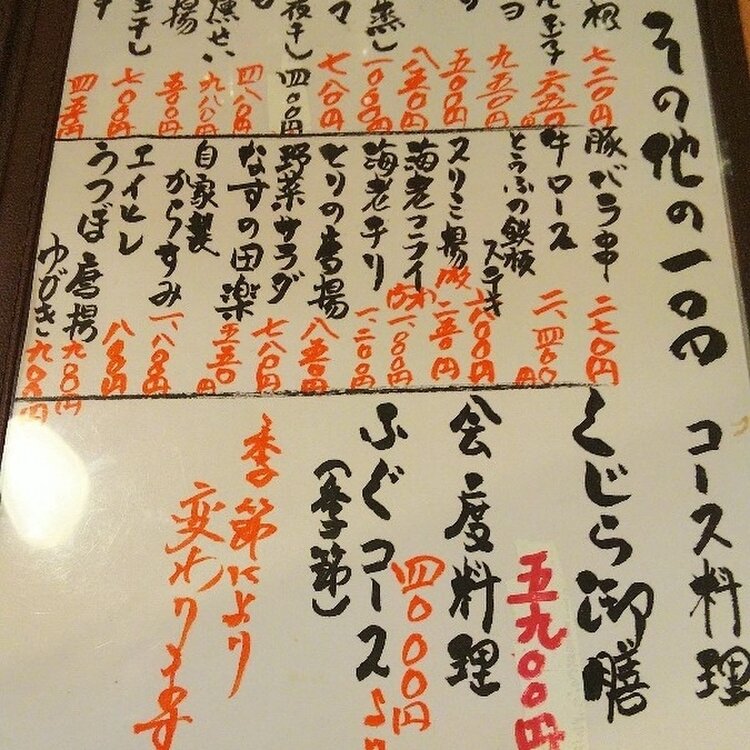 その他の一品
七二〇円
六五〇円
九五〇円
五〇〇円
八五〇円
一〇〇〇円
七八〇円
夜干し
四〇〇円
四八〇円
九八〇円
五〇〇円
七〇〇円
四五〇円
豚バラ串
二七〇円
牛ロース
二、四〇〇円
とうふの鉄板
ステーキ
六〇〇円
スリミ揚
二五〇円
海老フライ
一、〇〇〇円
海老チリ
一、二〇〇円
とりの唐揚
八五〇円
野菜サラダ
七八〇円
なすの田楽
五五〇円
自家製
からすみ
一、八〇〇円
エイヒレ
八〇〇円
うつぼ
唐揚
九〇〇円
ゆびき
九〇〇円
コース料理
くじら御膳
五九〇〇円
会度料理
四〇〇〇円
より
ふぐコース
（季節）
季節により
変わります